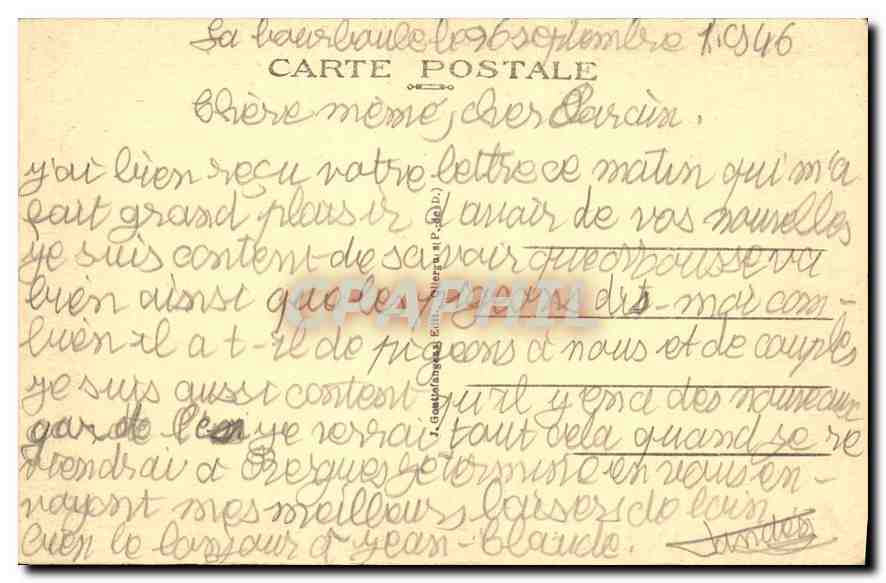 La bourboule le 26 septembre 1946
CARTE POSTALE
Chère mémé, cher Parain.
j'ai bien reçu votre lettre ce matin qui m'a
fait grand plaisir d'avoir de vos nouvelles
je suis content de savoir que mousse va
bien ainsi que les pigeons dis-moi com-
bien il a t-il de pigeons à nous et de couples
je suis aussi content qu'il y en a des nouveaux
garde l'en je verrai tout cela quand je re
viendrai à Bergues je termine en vous en-
voyant mes meilleurs baisers de loin
bien le bonjour à jean-Claude.
J. Gouttefangeas, Edit., Olliergues (P.-de-D.)
CPAPHIL